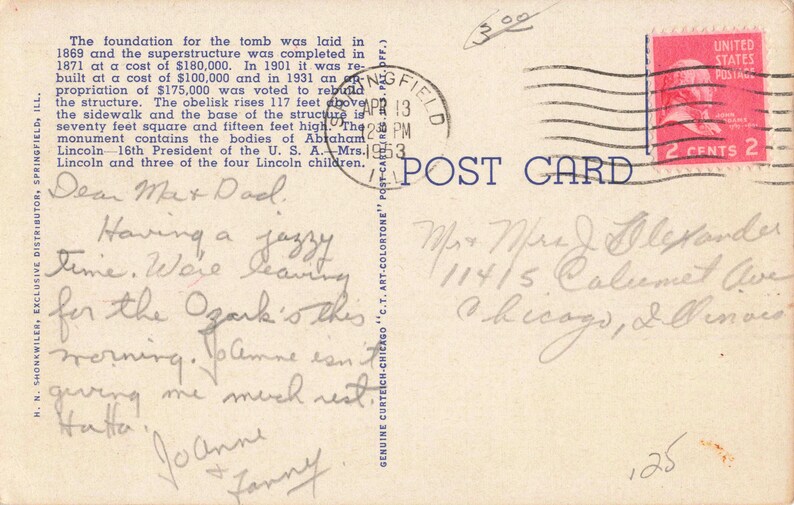 3.00
The foundation for the tomb was laid in
1869 and the superstructure was completed in
1871 at a cost of $180,000. In 1901 it was re-
built at a cost of $100,000 and in 1931 an ap-
propriation of $175,000 was voted to rebuild
the structure. The obelisk rises 117 feet above
the sidewalk and the base of the structure is
seventy feet square and fifteen feet high. The
monument contains the bodies of Abraham
Lincoln—16th President of the U. S. A.—Mrs.
Lincoln and three of the four Lincoln children.
H. N. SHONKWILER, EXCLUSIVE DISTRIBUTOR, SPRINGFIELD, ILL.
Dear Ma + Dad.
Having a jazzy
time. We're leaving
for the Ozark's this
morning. JoAnne isn't
giving me much rest.
HaHa.
JoAnne
+
Fanny.
GENUINE CURTEICH-CHICAGO "C.T. ART-COLORTONE" POST CARD (REG. U.S. PAT. OFF.)
SPRINGFIELD
APR 13
PM
1953
ILL.
UNITED
STATES
POSTAGE
JOHN
ADAMS
2 CENTS 2
POST CARD
Mr + Mrs J. Alexander
11415 Calumet Ave
Chicago, Illinois
.25